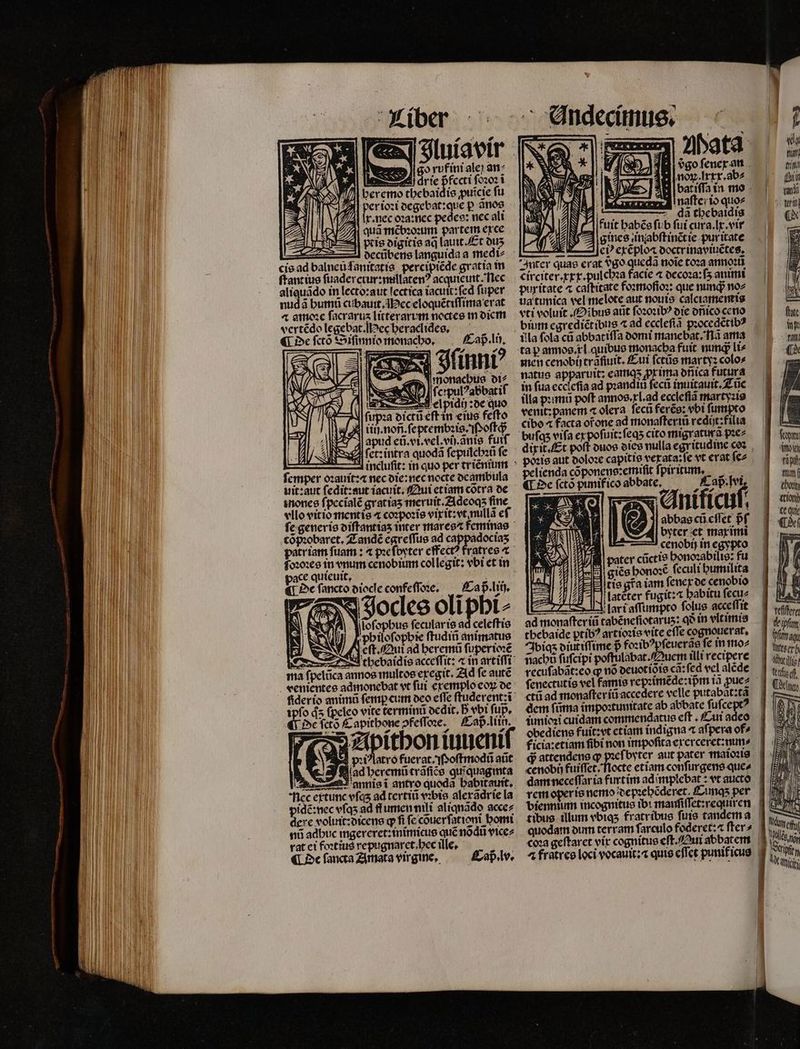 Liber
Siluia vir
go rufini alex an-
drie p̄fecti soror ĩ
heremo thebaidis ꝓuicie su
periori degebat: que ꝑ ãnos
lx. nec ora: nec pedes: nec ali
quã mẽbrorum partem exce
ptis digitis aq̃ lauit. Et dum
decũbens languida a medi-
cis ad balneũ sanitatis percipiẽde gratia in
stantius suaderetur: nullatenꝰ acquieuit. Nec
aliquãdo in lecto: aut lectica iacuit: sed super
nudã humũ cubauit. Hec eloquẽtissima erat
⁊ amore sacrarum litterarum noctes in diem
vertẽdo legebat. Hec heraclides.
¶ De sctõ Sisinnio monacho. Cap̄. lij.
Sisinniꝰ
monachus di-
scipulꝰ abbatis
elpidij: de quo
supra dictũ est in eius festo
iiij. noñ. septembris. Postq̃
apud eũ. vi. vel. vij. ãnis fuis
set: intra quodã sepulchrũ se
inclusit: in quo per triẽnium
semper orauit: ⁊ nec die: nec nocte deambula
uit: aut sedit: aut iacuit. Qui etiam cõtra de
mones specialẽ gratiam meruit. Adeoqꝫ sine
vllo vitio mentis ⁊ corporis vixit: vt nullã es
se generis distantiam inter mares ⁊ feminas
cõprobaret. Tandẽ egressus ad cappadociam
patriam suam: ⁊ presbyter effectꝰ fratres ⁊
sorores in vnum cenobium collegit: vbi et in
pace quieuit.
¶ De sancto diocle confessore. Cap̄. liij.
Diocles oli phi-
losophus secularis ad celestis
philosophie studiũ animatus
est. Qui ad heremũ superiorẽ
thebaidis accessit: ⁊ in artissi
ma spelũca annos multos exegit. Ad se autẽ
venientes admonebat vt sui exemplo eoꝝ de
siderio animũ semp cum deo esse studerent: ĩ
ipso qꝫ speleo vite terminũ dedit. H̃ vbi sup̄.
¶ De sctõ Capithone ↄfessore. Cap̄. liiij.
Capithon iuuenis
priꝰ latro fuerat. Postmodũ aũt
ad heremũ trãsiẽs quĩquaginta
annis ĩ antro quodã habitauit.
Nec ex tunc vsqꝫ ad tertiũ vrbis alexãdrie la
pidẽ: nec vsqꝫ ad flumen nili aliqñdo acce-
dere voluit: dicens ꝙ si se cõuersationi homi
nũ adhuc ingereret: inimicus quẽ nõdũ vice-
rat ei fortius repugnaret. hec ille.
¶ De sancta Amata virgine. Cap̄. lv.
Undecimus.
Amata
v̊go senex an
noꝝ. lxxx. ab-
batissa in mo
nasterio quo-
dã thebaidis
fuit habẽs sub sui cura. lx. vir
gines: in abstinẽtie puritate
eiꝰ exẽplo ⁊ doctrina viuẽtes.
Inter quas erat v̊go quedã noĩe tora annorũ
circiter. xxx. pulchra facie ⁊ decora: sꝫ animi
puritate ⁊ castitate formosior: que nunq̃ no-
ua tunica vel melote aut nouis calciamentis
vti voluit. Oibus aũt sororibꝰ die dñico ceno
bium egrediẽtibus ⁊ ad ecclesiã procedẽtibꝰ
illa sola cũ abbatissa domi manebat. Nã ama
ta ꝑ annos. xl. quibus monacha fuit nunq̃ li-
men cenobij trãsiuit. Cui sctũs martyr colo-
natus apparuit: eamqꝫ ꝓxima dñica futura
in sua ecclesia ad prandiũ secũ inuitauit. Tũc
illa primũ post annos. xl. ad ecclesiã martyris
venit: panem ⁊ olera secũ ferẽs: vbi sumpto
cibo ⁊ facta orõne ad monasteriũ redijt: filia
busqꝫ visa exposuit: seqꝫ cito migraturã pre-
dixit. Et post duos dies nulla egritudine cor
poris aut dolore capitis vexata: se vt erat se-
pelienda cõponens: emisit spiritum.
¶ De sctõ punifico abbate. Cap̄. lvi.
Punificus
abbas cũ esset p̄s
byter et maximi
cenobij in egypto
pater cũctis honorabilis: su
giẽs honorẽ seculi humilita
tis gr̃a iam senex de cenobio
latẽter fugit: ⁊ habitu secu-
lari assumpto solus accessit
ad monasteriũ tabẽnesiotarum: qd̃ in vltimis
thebaide ptibꝰ artioris vite esse cognouerat.
Ibiqꝫ diutissime p̃ foribꝰ pseuerãs se in mo-
nachũ suscipi postulabat. Quem illi recipere
recusabãt: eo ꝙ nõ deuotiõis cã: sed vel alẽde
senectutis vel famis reprimẽde: ipm iã ꝓue-
ctũ ad monasteriũ accedere velle putabãt: tã
dem sũma importunitate ab abbate susceptꝰ
iuniori cuidam commendatus est. Cui adeo
obediens fuit: vt etiam indigna ⁊ aspera of-
ficia: etiam sibi non imposita exerceret: nun-
q̃ attendens ꝙ presbyter aut pater maioris
cenobij fuisset. Nocte etiam consurgens que-
dam necessaria furtim adimplebat: vt aucto
rem operis nemo deprehẽderet. Cumqꝫ per
biennium incognitus ibi mansisset: requiren
tibus illum vbiqꝫ fratribus suis tandem a
quodam dum terram sarculo foderet: ⁊ ster-
cora gestaret vir cognitus est. Qui abbatem
⁊ fratres loci vocauit: ⁊ quis esset punificus